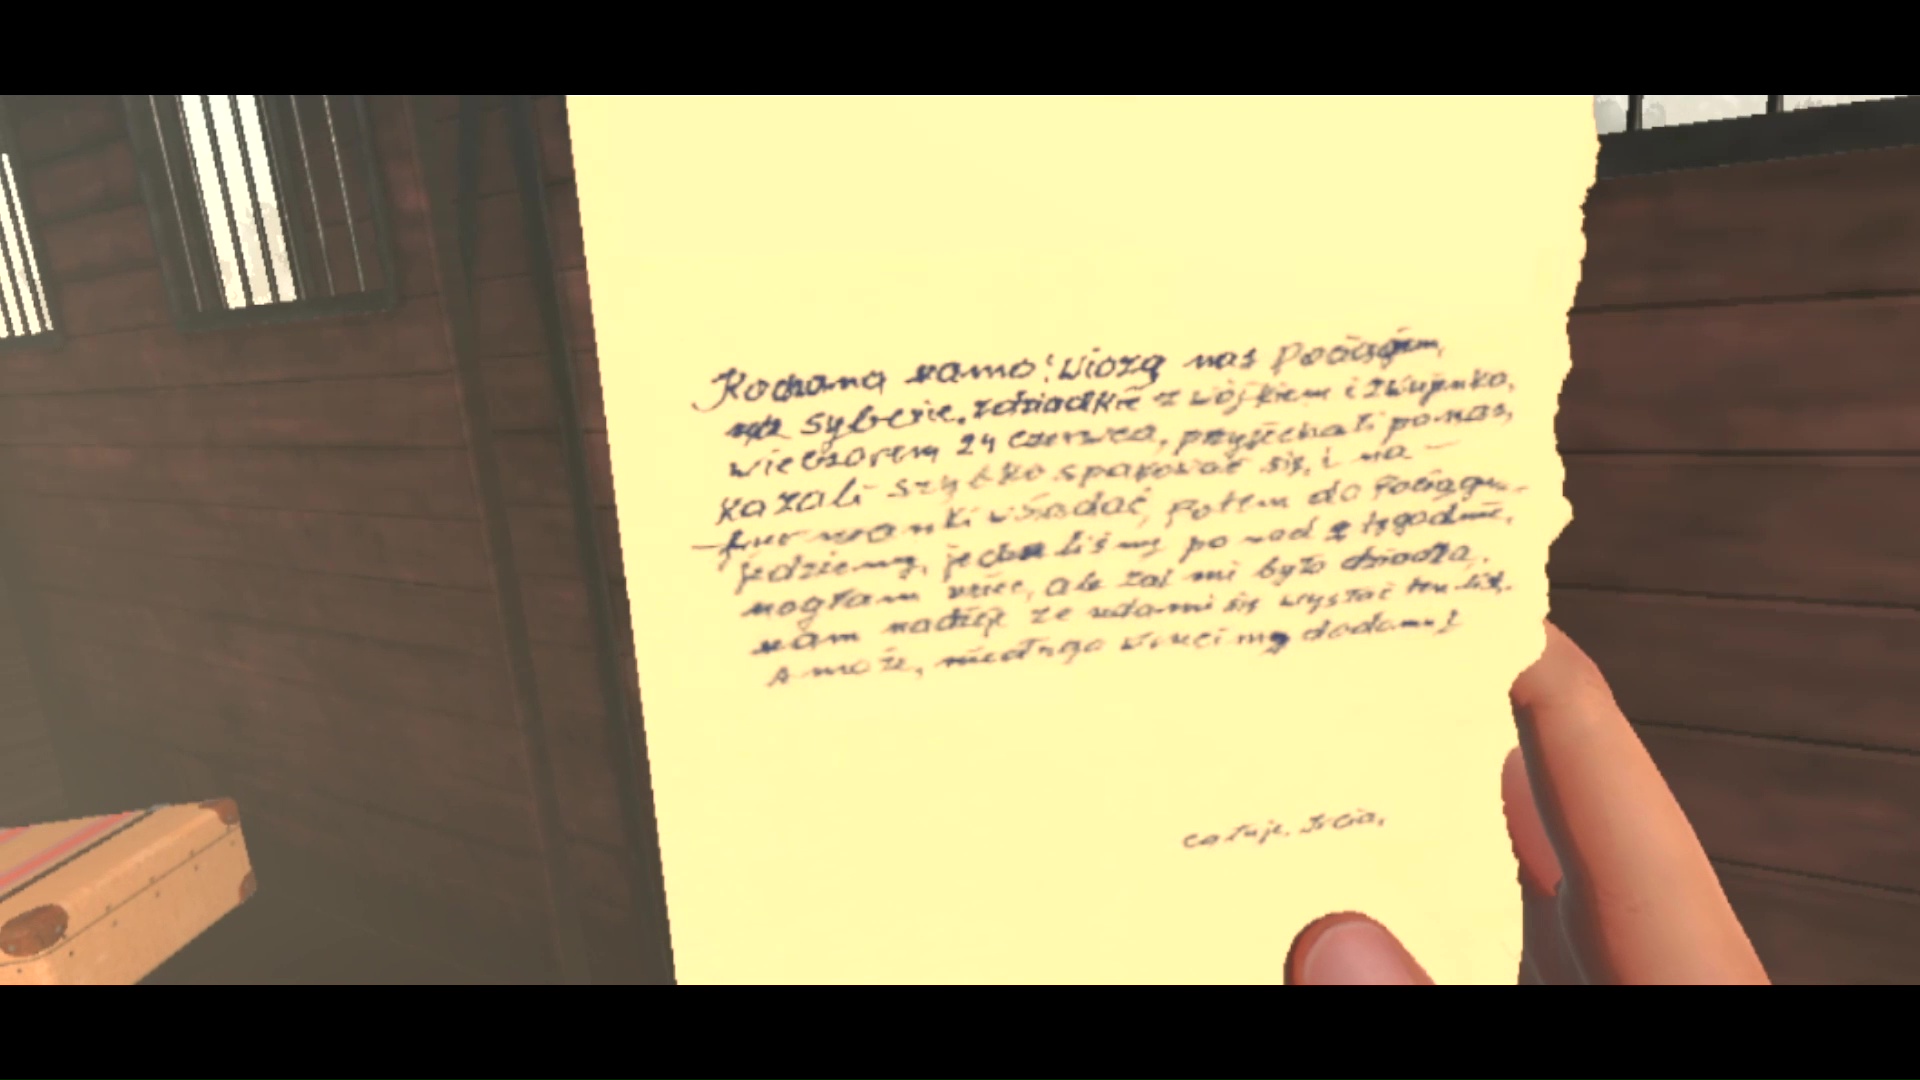 Kochana mamo! wiozą nas Pociągiem,
na syberie. z dziadkiē z wójkiem i z wujenko,
wieczorem 24 czerwca, przyjechali po nas,
kazali szybko spakować się, i na –
– furmanki wsiadać, potem do Pociągu.
jedziemy, jechaliśmy ponad 2 tygodnie,
mogłam uciec, ale żal mi było dziadka.
mam nadzieje że uda mi się wysłać ten list.
A może, niedługo wrócimy do domu!
całuje. Ircia,